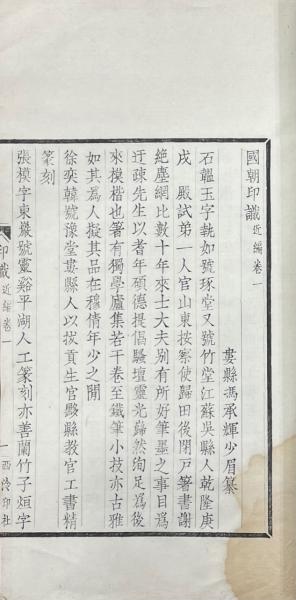 國朝印識近編卷一
婁縣馮承輝少眉纂
石韞玉字執如號琢堂又號竹堂江蘇吳縣人乾隆庚
戌　殿試弟一人官山東按察使歸田後閉戶箸書謝
絶塵網比數十年來士大夫別有所好筆墨之事目爲
迂疎先生以耆年碩德提倡騷壇靈光巋然洵足爲後
來模楷也箸有獨學廬集若干卷至鐵筆小技亦古雅
如其爲人擬其品在穆倩年少之閒
徐奕韓號豫堂婁縣人以拔貢生官黟縣教官工書精
篆刻
張模字東巖號靈谿平湖人工篆刻亦善蘭竹子烜字
印識近編卷一
一
西泠印社